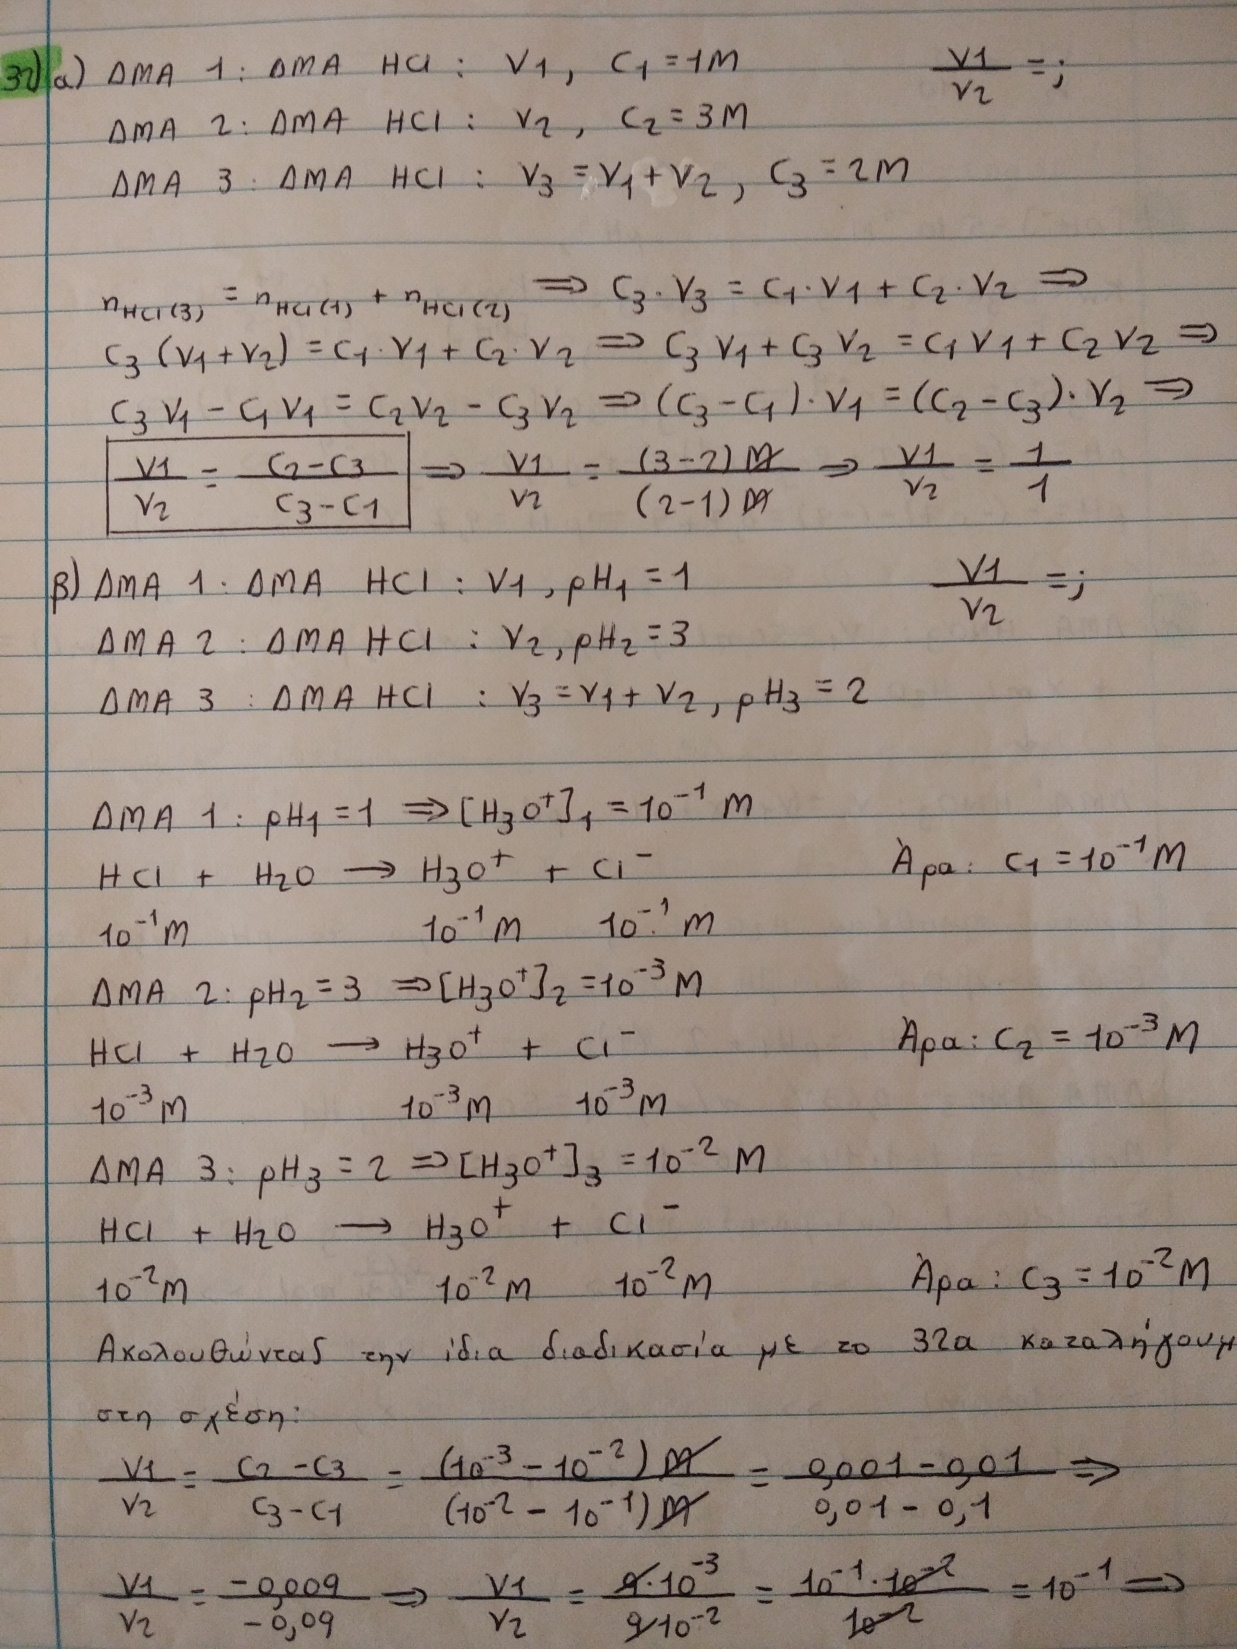 32) α) ΔΜΑ 1: ΔΜΑ HCl: V1, C1=1M V1/V2 =;
ΔΜΑ 2: ΔΜΑ HCl: V2, C2=3M
ΔΜΑ 3: ΔΜΑ HCl: V3=V1+V2, C3=2M
nHCl(3) = nHCl(1) + nHCl(2) ⇒ C3·V3 = C1·V1 + C2·V2 ⇒
C3 (V1+V2) = C1·V1 + C2·V2 ⇒ C3V1 + C3V2 = C1V1 + C2V2 ⇒
C3V1 - C1V1 = C2V2 - C3V2 ⇒ (C3-C1)·V1 = (C2-C3)·V2 ⇒
V1/V2 = C2-C3/C3-C1 ⇒ V1/V2 = (3-2)M/(2-1)M ⇒ V1/V2 = 1/1
β) ΔΜΑ 1: ΔΜΑ HCl: V1, pH1=1 V1/V2 =;
ΔΜΑ 2: ΔΜΑ HCl: V2, pH2=3
ΔΜΑ 3: ΔΜΑ HCl: V3=V1+V2, pH3=2
ΔΜΑ 1: pH1=1 ⇒ [H3O⁺]1 = 10⁻¹ M
HCl + H2O → H3O⁺ + Cl⁻ Άρα: C1=10⁻¹M
10⁻¹M 10⁻¹M 10⁻¹M
ΔΜΑ 2: pH2=3 ⇒ [H3O⁺]2 = 10⁻³M
HCl + H2O → H3O⁺ + Cl⁻ Άρα: C2 = 10⁻³M
10⁻³M 10⁻³M 10⁻³M
ΔΜΑ 3: pH3=2 ⇒ [H3O⁺]3 = 10⁻² M
HCl + H2O → H3O⁺ + Cl⁻
10⁻²M 10⁻²M 10⁻²M Άρα: C3=10⁻²M
Ακολουθώντας την ίδια διαδικασία με το 32α καταλήγουμ
στη σχέση:
V1/V2 = C2-C3/C3-C1 = (10⁻³-10⁻²)M/(10⁻²-10⁻¹)M = 0,001-0,01/0,01-0,1 ⇒
V1/V2 = -0,009/-0,09 ⇒ V1/V2 = 9·10⁻³/9·10⁻² = 10⁻¹·10⁻²/10⁻² = 10⁻¹ ⇒